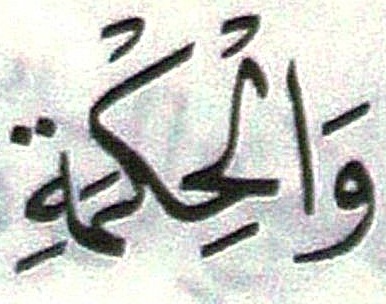 وَالْحِكْمَةِ